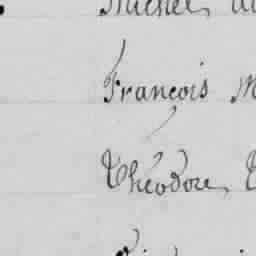 Michel,
François M
Théodore,